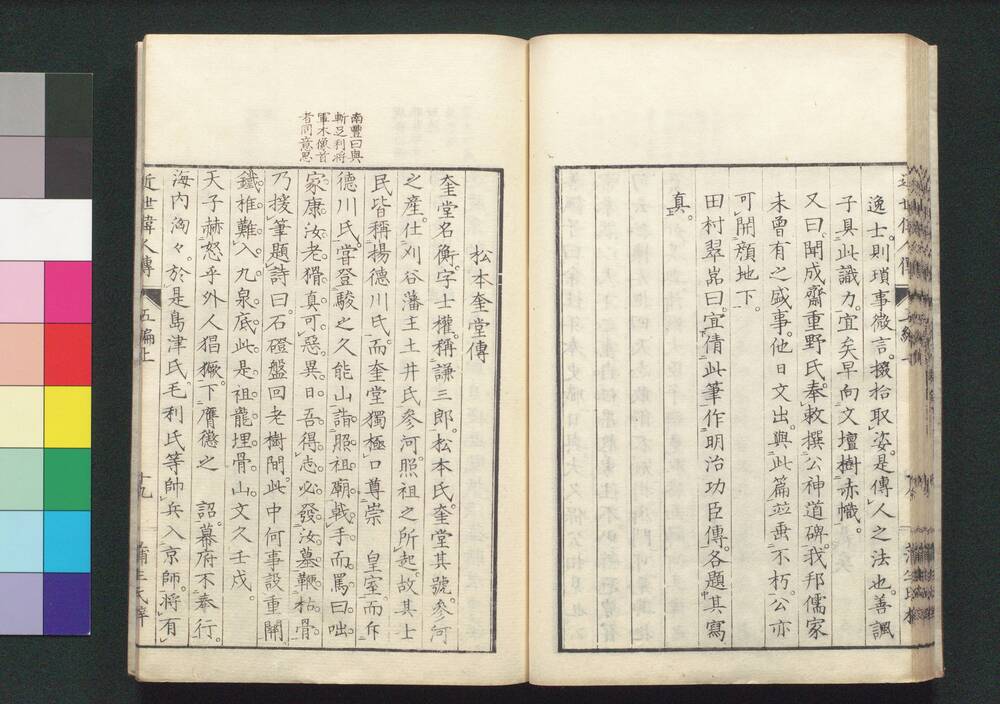 逸士。則瑣事微言。掇拾取姿。是傳人之法也。善諷
子具此識力。宜矣早向文壇樹赤幟。
又曰。聞成齋重野氏。奉敕撰公神道碑。我邦儒家
未曾有之盛事。他日文出。與此篇並垂不朽。公亦
可開顏地下。
田村翠嵓曰。宜倩此筆作明治功臣傳。各題其寫
真。
松本奎堂傳
奎堂名衡。字士權。稱謙三郎。松本氏。奎堂其號。參河
之產。仕刈谷藩主土井氏。參河照祖之所起。故其士
民皆稱揚德川氏。而奎堂獨極口尊崇 皇室。而斥
德川氏。嘗登駿之久能山。詣照祖廟。戟手而罵曰。咄
家康。汝老猾。真可惡。異日吾得志。必發汝墓。鞭枯骨。
乃援筆題詩曰。石磴盤回老樹間。此中何事設重關。
鐵椎難入九泉底。此是祖龍埋骨山。文久壬戌。
天子赫怒乎外人猖獗。下膺懲之 詔。幕府不奉行。
海內洶々。於是島津氏。毛利氏等。帥兵入京師。將有
南豐曰與
斬足利將
軍木像首
者同意思
近世偉人傳 五編上 十九 蒲生氏梓